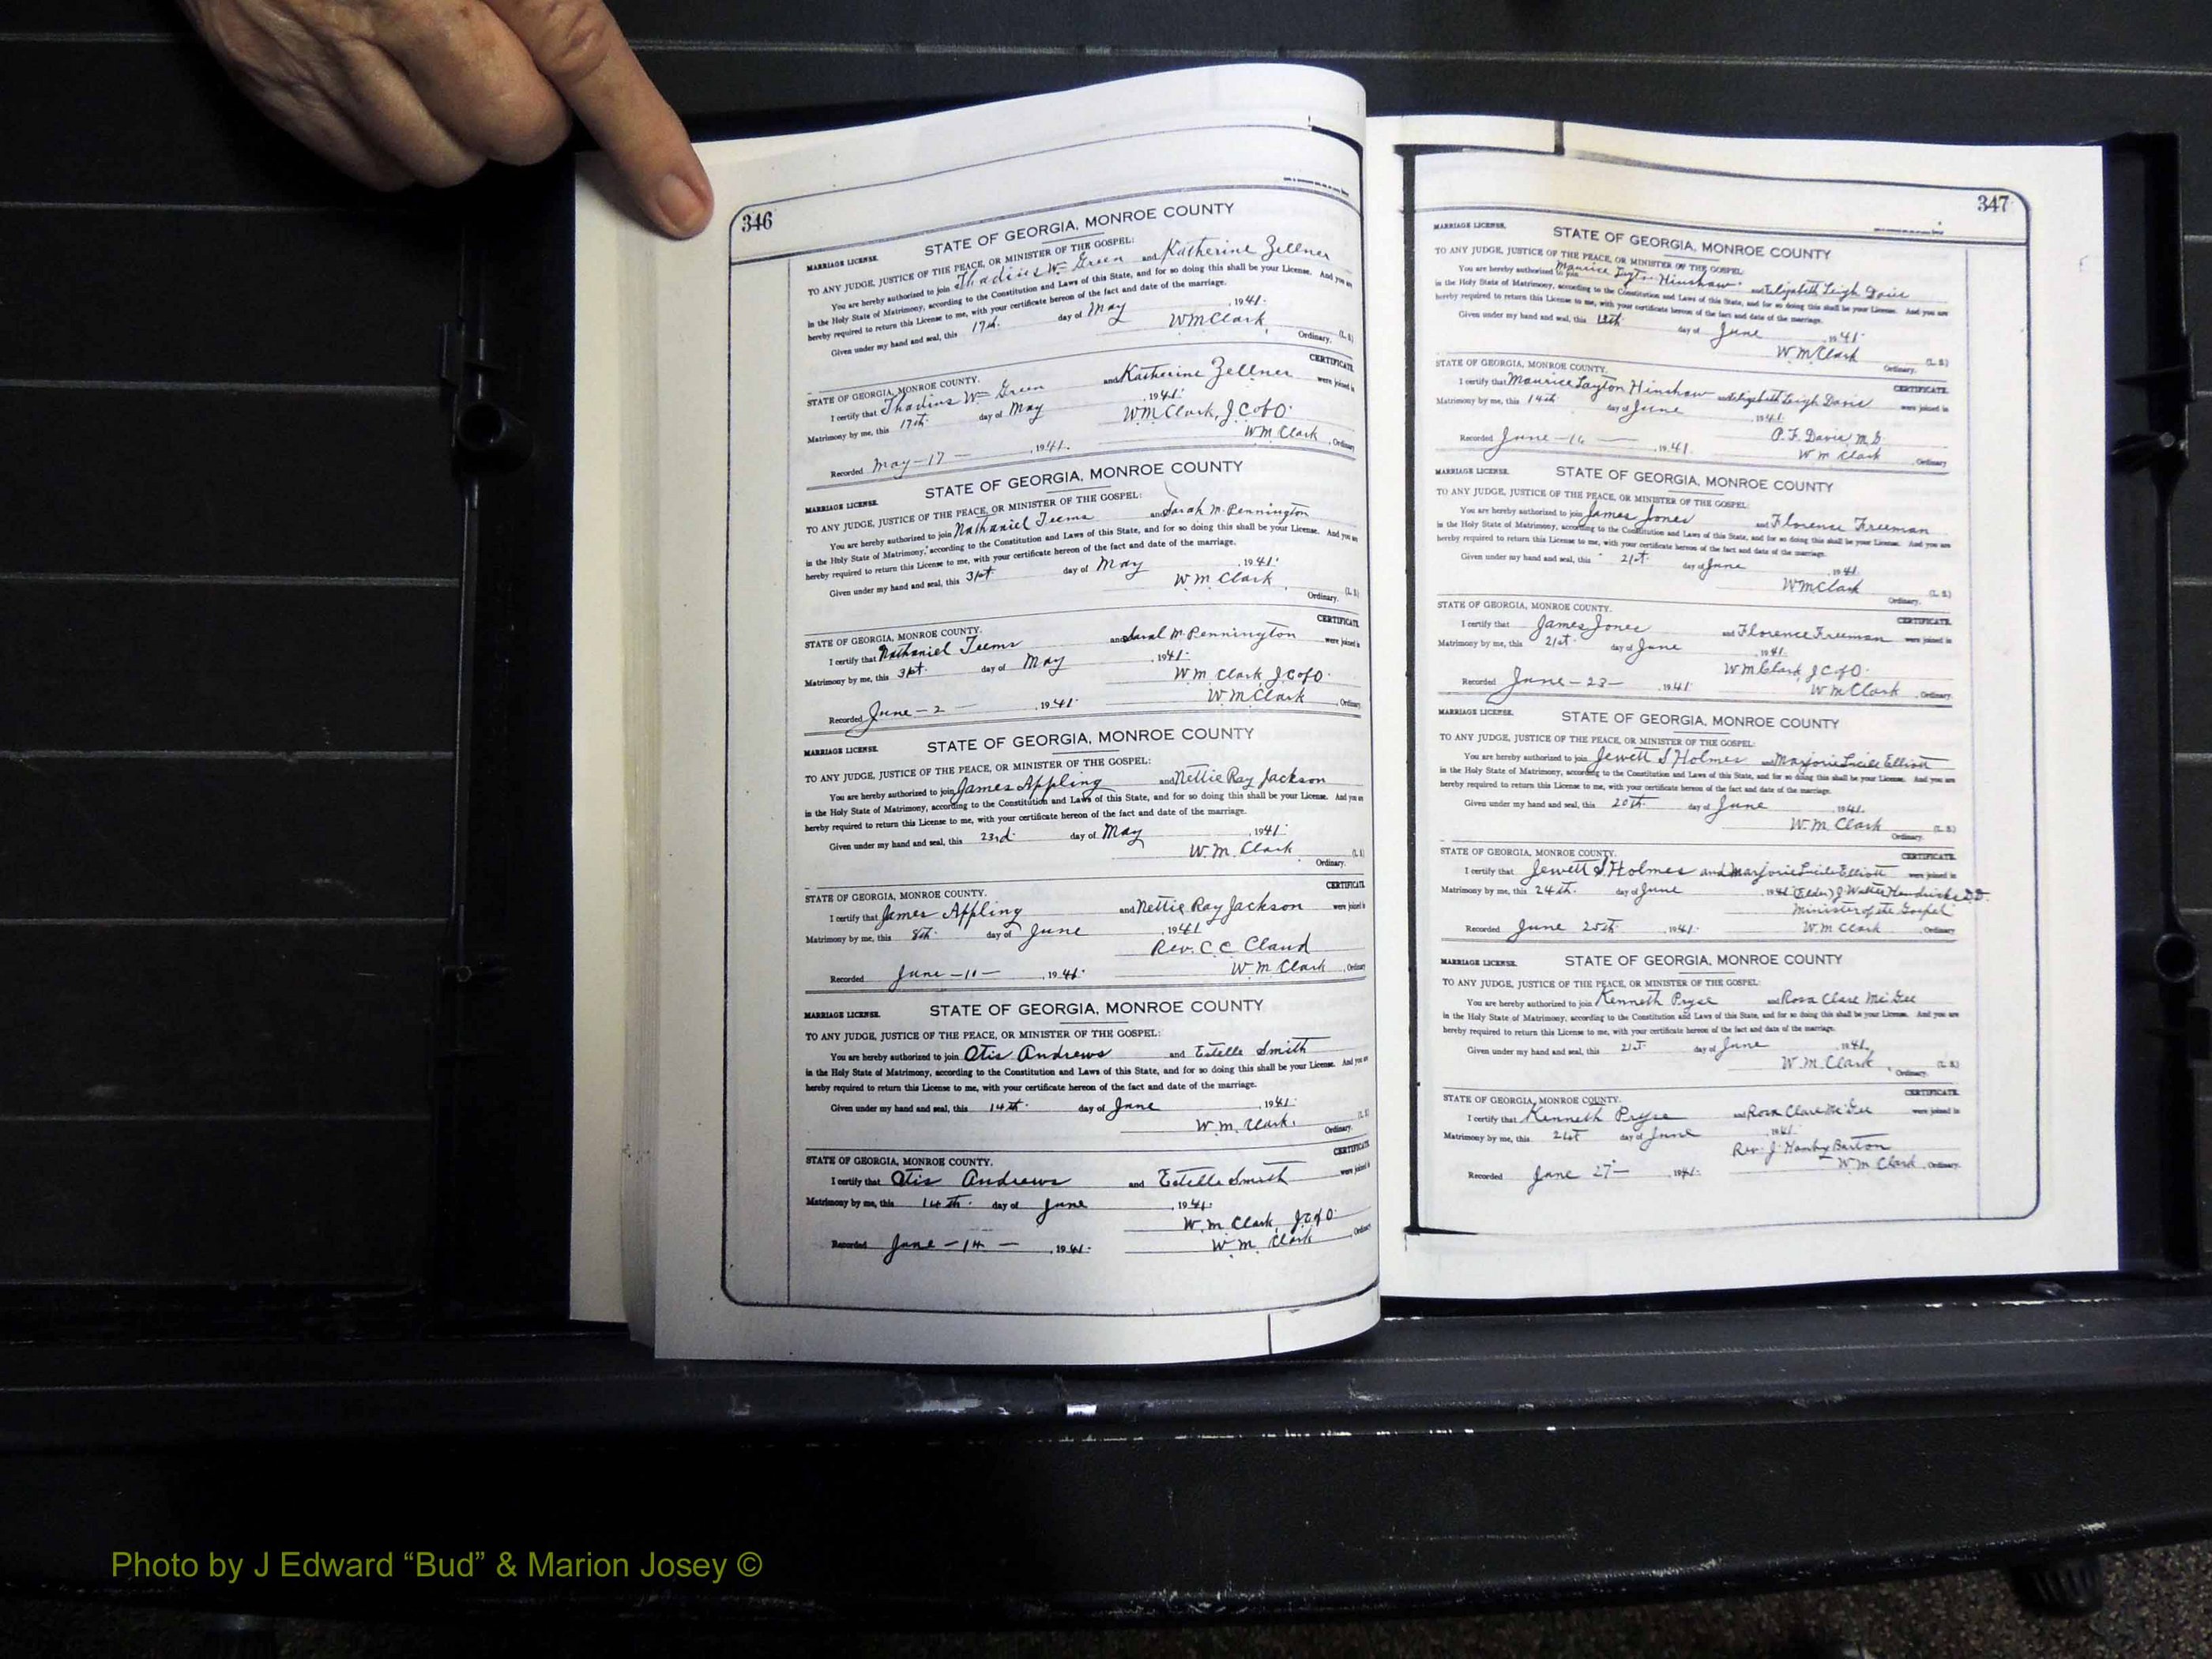 346
MARRIAGE LICENSE. STATE OF GEORGIA, MONROE COUNTY
TO ANY JUDGE, JUSTICE OF THE PEACE, OR MINISTER OF THE GOSPEL:
You are hereby authorized to join Thadius W. Green and Katherine Zellner
in the Holy State of Matrimony, according to the Constitution and Laws of this State, and for so doing this shall be your License. And you are
hereby required to return this License to me, with your certificate hereon of the fact and date of the marriage.
Given under my hand and seal, this 17th. day of May, 1941.
W M Clark, Ordinary. (L. S.)
STATE OF GEORGIA, MONROE COUNTY. CERTIFICATE.
I certify that Thadius W. Green and Katherine Zellner were joined in
Matrimony by me, this 17th. day of May, 1941.
W M Clark, J C of O.
Recorded May-17-, 1941. W M Clark, Ordinary
MARRIAGE LICENSE. STATE OF GEORGIA, MONROE COUNTY
TO ANY JUDGE, JUSTICE OF THE PEACE, OR MINISTER OF THE GOSPEL:
You are hereby authorized to join Nathaniel Teems and Sarah M. Pennington
in the Holy State of Matrimony, according to the Constitution and Laws of this State, and for so doing this shall be your License. And you are
hereby required to return this License to me, with your certificate hereon of the fact and date of the marriage.
Given under my hand and seal, this 31st. day of May, 1941.
W M Clark, Ordinary. (L. S.)
STATE OF GEORGIA, MONROE COUNTY. CERTIFICATE
I certify that Nathaniel Teems and Sarah M. Pennington were joined in
Matrimony by me, this 31st. day of May, 1941.
W M Clark J C of O.
Recorded June-2-, 1941. W M Clark, Ordinary
MARRIAGE LICENSE. STATE OF GEORGIA, MONROE COUNTY
TO ANY JUDGE, JUSTICE OF THE PEACE, OR MINISTER OF THE GOSPEL:
You are hereby authorized to join James Appling and Nettie Ray Jackson
in the Holy State of Matrimony, according to the Constitution and Laws of this State, and for so doing this shall be your License. And you are
hereby required to return this License to me, with your certificate hereon of the fact and date of the marriage.
Given under my hand and seal, this 23rd. day of May, 1941.
W. M. Clark Ordinary. (L. S.)
STATE OF GEORGIA, MONROE COUNTY. CERTIFICATE
I certify that James Appling and Nettie Ray Jackson were joined in
Matrimony by me, this 8th. day of June, 1941
Rev. C. C. Cland
Recorded June-10-, 1941. W. M. Clark, Ordinary
MARRIAGE LICENSE. STATE OF GEORGIA, MONROE COUNTY
TO ANY JUDGE, JUSTICE OF THE PEACE, OR MINISTER OF THE GOSPEL:
You are hereby authorized to join Otis Andrews and Estelle Smith
in the Holy State of Matrimony, according to the Constitution and Laws of this State, and for so doing this shall be your License. And you are
hereby required to return this License to me, with your certificate hereon of the fact and date of the marriage.
Given under my hand and seal, this 14th. day of June, 1941.
W. M. Clark. Ordinary. (L. S.)
STATE OF GEORGIA, MONROE COUNTY. CERTIFICATE
I certify that Otis Andrews and Estelle Smith were joined in
Matrimony by me, this 14th. day of June, 1941.
W. M Clark, J C of O.
Recorded June-14-, 1941. W. M. Clark, Ordinary
347
MARRIAGE LICENSE. STATE OF GEORGIA, MONROE COUNTY
TO ANY JUDGE, JUSTICE OF THE PEACE, OR MINISTER OF THE GOSPEL:
You are hereby authorized to join Maurice Layton Hinshaw and Elizabeth Leigh Davie
in the Holy State of Matrimony, according to the Constitution and Laws of this State, and for so doing this shall be your License. And you are
hereby required to return this License to me, with your certificate hereon of the fact and date of the marriage.
Given under my hand and seal, this day of June, 1941.
W M Clark Ordinary. (L. S.)
STATE OF GEORGIA, MONROE COUNTY. CERTIFICATE.
I certify that Maurice Layton Hinshaw and Elizabeth Leigh Davie were joined in
Matrimony by me, this 14th day of June, 1941.
P. F. Davie, M. G.
Recorded June-16-, 1941. W M Clark, Ordinary
MARRIAGE LICENSE. STATE OF GEORGIA, MONROE COUNTY
TO ANY JUDGE, JUSTICE OF THE PEACE, OR MINISTER OF THE GOSPEL:
You are hereby authorized to join James Jones and Florence Freeman
in the Holy State of Matrimony, according to the Constitution and Laws of this State, and for so doing this shall be your License. And you are
hereby required to return this License to me, with your certificate hereon of the fact and date of the marriage.
Given under my hand and seal, this 21st. day of June, 1941.
W M Clark Ordinary. (L. S.)
STATE OF GEORGIA, MONROE COUNTY. CERTIFICATE
I certify that James Jones and Florence Freeman were joined in
Matrimony by me, this 21st. day of June, 1941.
W M Clark, J C of O.
Recorded June-23-, 1941 W M Clark, Ordinary.
MARRIAGE LICENSE. STATE OF GEORGIA, MONROE COUNTY
TO ANY JUDGE, JUSTICE OF THE PEACE, OR MINISTER OF THE GOSPEL:
You are hereby authorized to join Jewett S Holmes and Marjorie Lucile Elliott
in the Holy State of Matrimony, according to the Constitution and Laws of this State, and for so doing this shall be your License. And you are
hereby required to return this License to me, with your certificate hereon of the fact and date of the marriage.
Given under my hand and seal, this 20th. day of June, 1941.
W. M. Clark Ordinary. (L. S.)
STATE OF GEORGIA, MONROE COUNTY. CERTIFICATE
I certify that Jewett S. Holmes and Marjorie Lucile Elliott were joined in
Matrimony by me, this 24th. day of June, 1941 (Elder) J. Walter Hendricks D.D.
Minister of the Gospel
Recorded June 25th, 1941. W M Clark, Ordinary
MARRIAGE LICENSE. STATE OF GEORGIA, MONROE COUNTY
TO ANY JUDGE, JUSTICE OF THE PEACE, OR MINISTER OF THE GOSPEL:
You are hereby authorized to join Kenneth Pryse and Rosa Clare McGee
in the Holy State of Matrimony, according to the Constitution and Laws of this State, and for so doing this shall be your License. And you are
hereby required to return this License to me, with your certificate hereon of the fact and date of the marriage.
Given under my hand and seal, this 21st. day of June, 1941.
W. M. Clark, Ordinary. (L. S.)
STATE OF GEORGIA, MONROE COUNTY. CERTIFICATE
I certify that Kenneth Pryse and Rosa Clare McGee were joined in
Matrimony by me, this 21st day of June, 1941.
Rev. J. Hamby Barton
Recorded June 27-, 1941. W M Clark, Ordinary.
Photo by J Edward “Bud” & Marion Josey ©